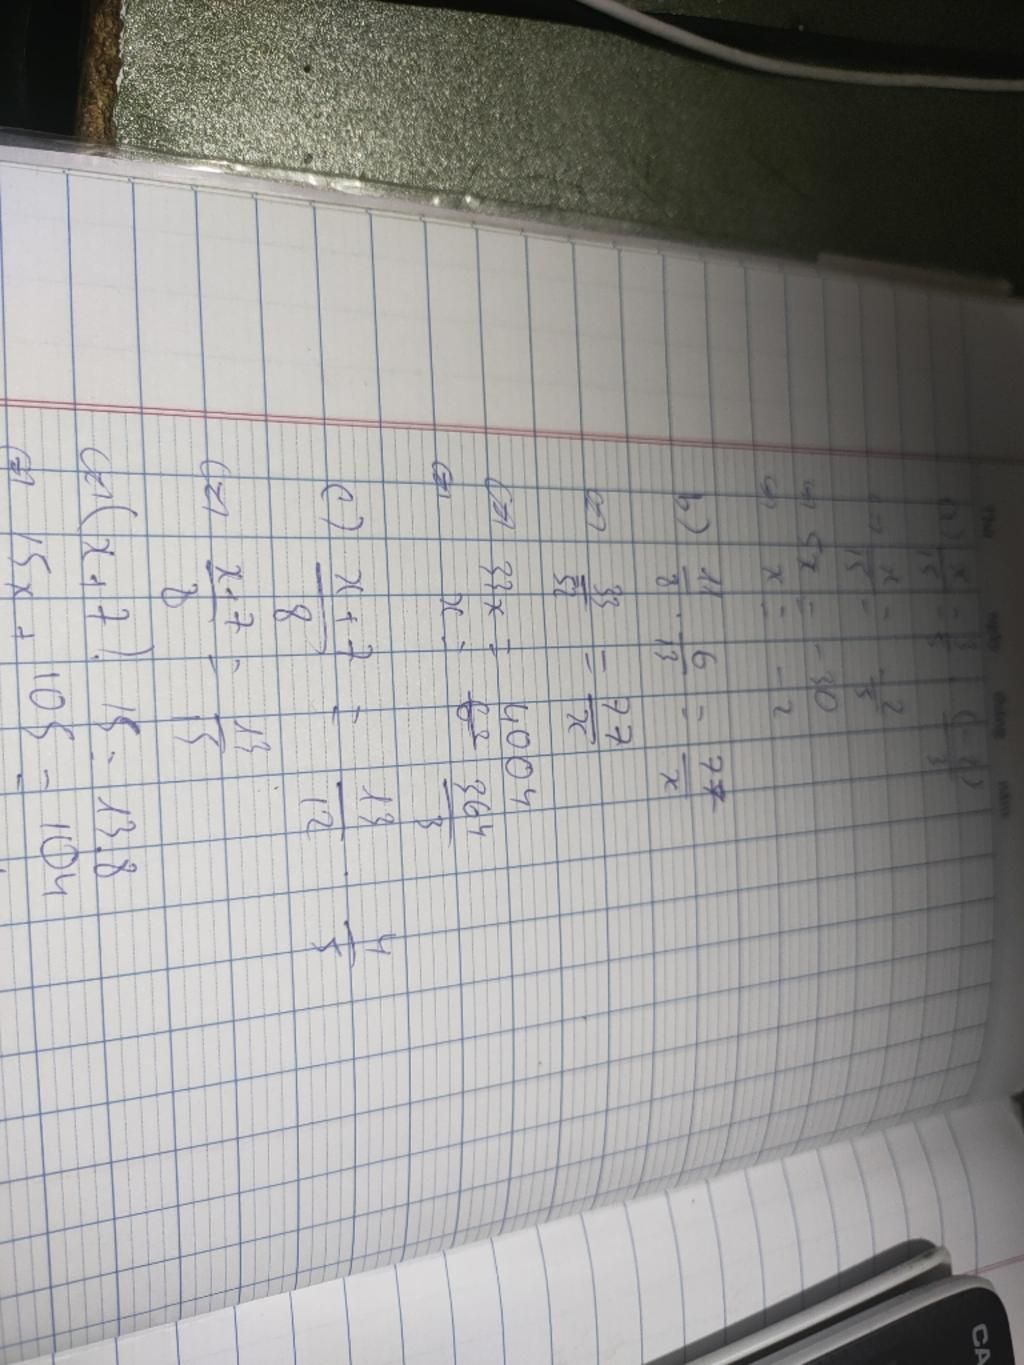 Thứ ngày tháng năm
a) x/15 = 3/5 · (-2/3)
x/15 = -2/5
5x = -30
x = -2
b) 11/8 · 6/13 = 77/x
<=> 33/52 = 77/x
<=> 33x = 4004
<=> x = 364/3
c) x+7/8 = 13/12 · 4/5
<=> x+7/8 = 13/15
<=> (x+7) · 15 = 13.8
<=> 15x + 105 = 104
CA